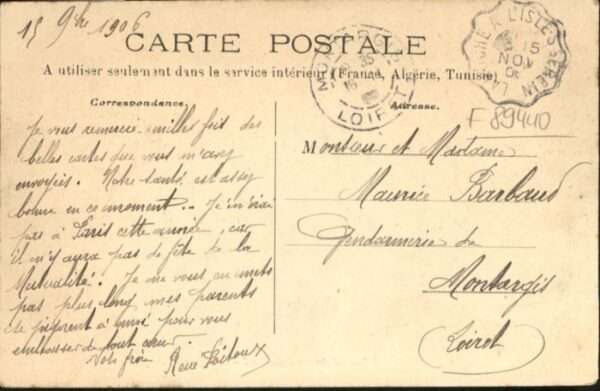 15 9bre 1906
CARTE POSTALE
A utiliser seulement dans le service intérieur (France, Algérie, Tunisie)
Correspondance
Je vous remercie milles fois des
belles cartes que vous m'avez
envoyées. Notre santé est assez
bonne en ce moment. Je n'irai
pas à Paris cette année, car
il n'y aura pas de fête de la
Mutualité. Je ne vous en mets
pas plus long mes parents
se joignent à moi pour vous
embrasser de tout cœur.
Votre frère
René
Adresse
F 89440
Monsieur et Madame
Maurice Barbaud
Gendarmerie de
Montargis
(Loiret)
LOIRET
LAROCHE A L'ISLE-S-SEREIN
15
NOV